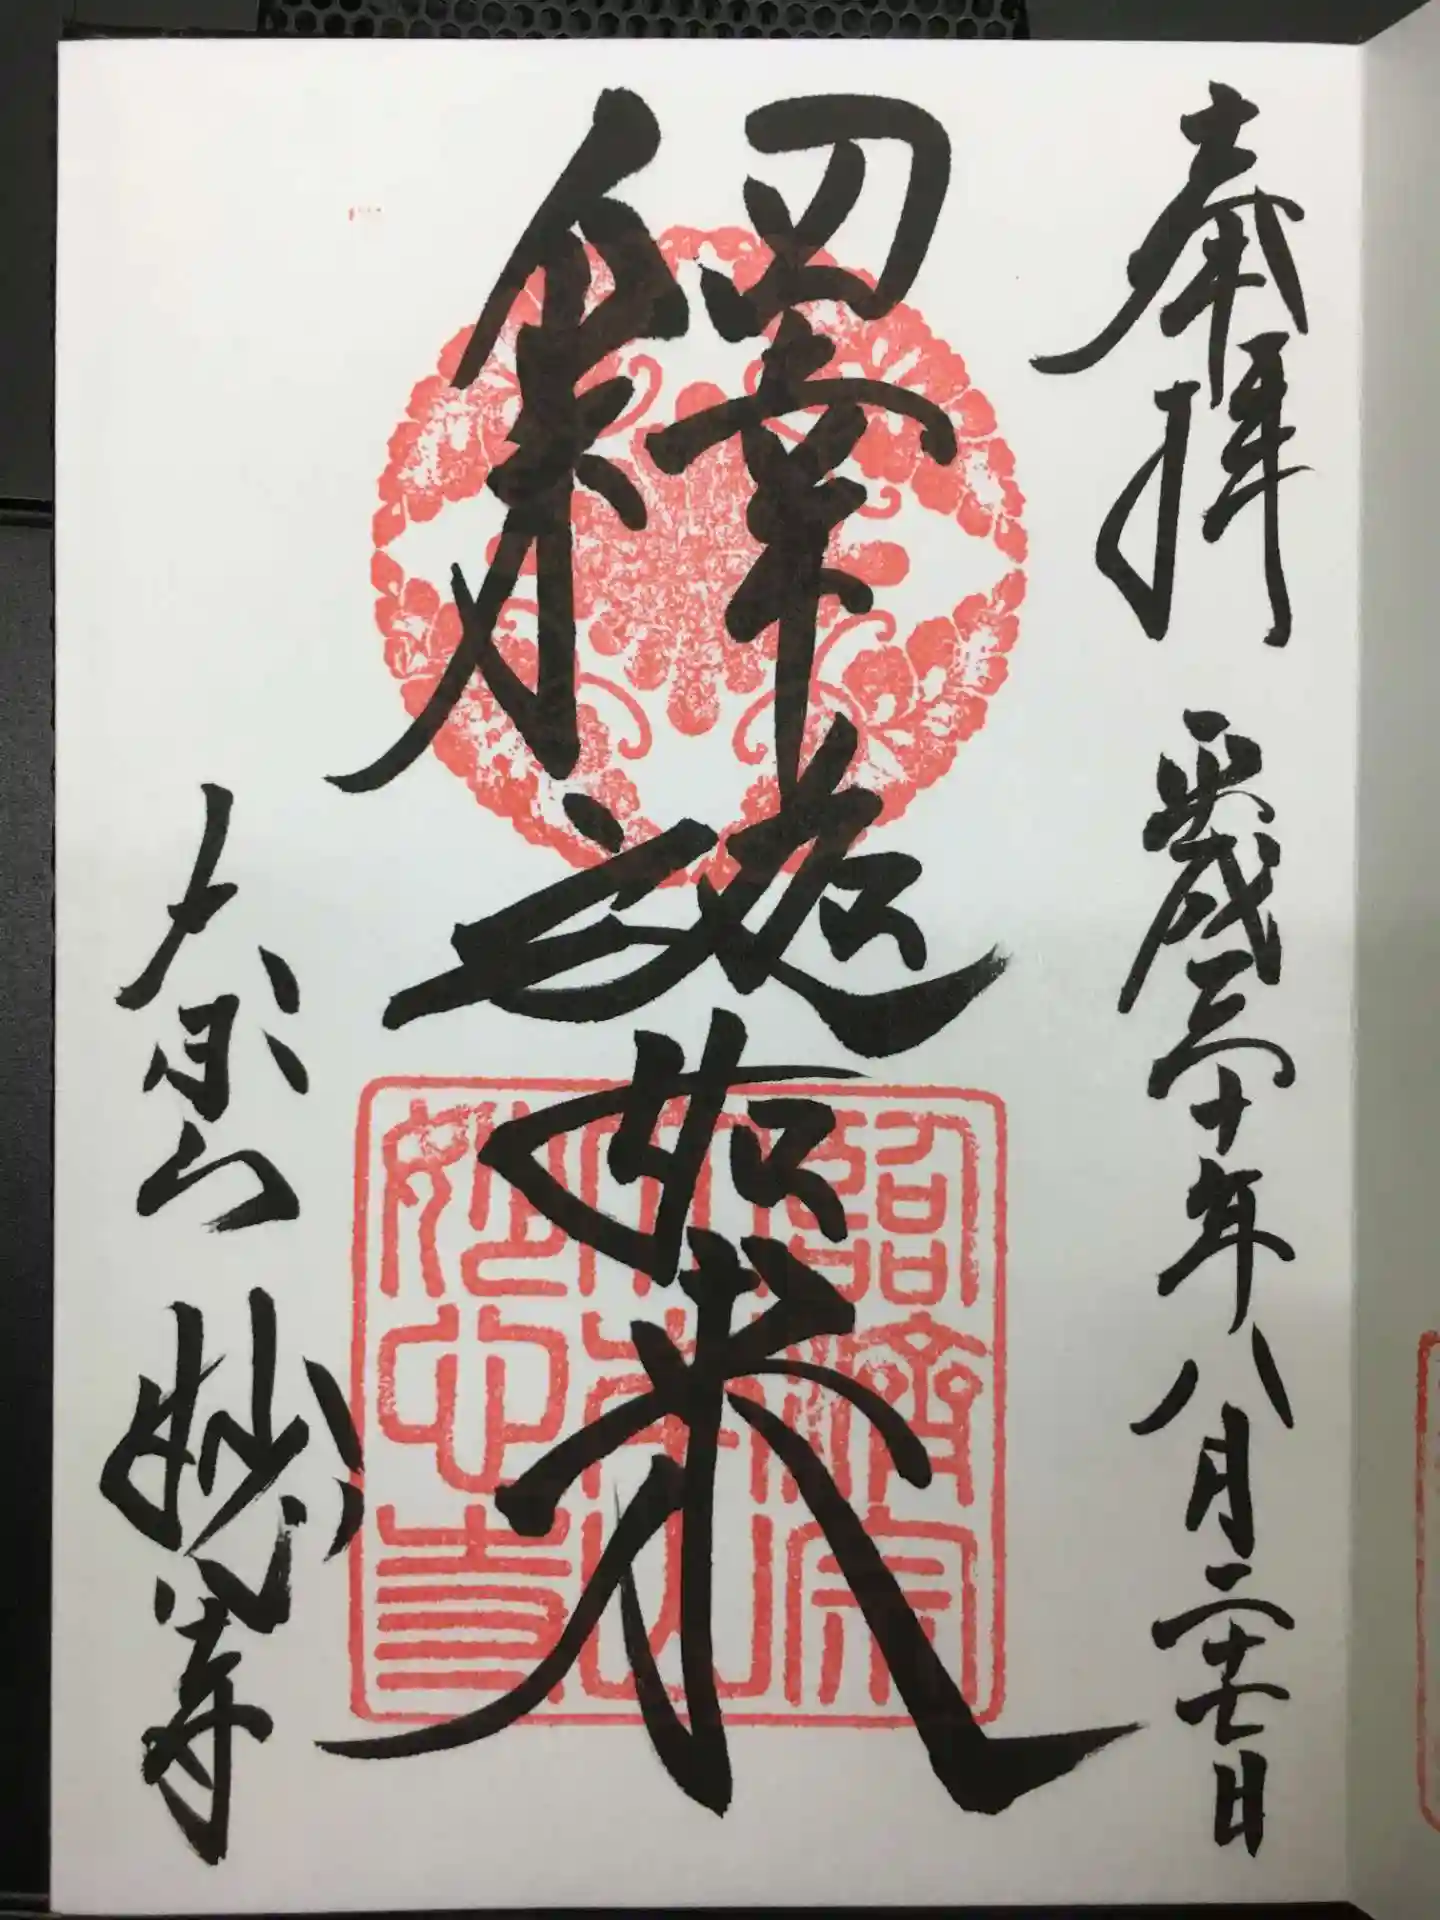 奉拝 平成三十年八月二十七日
釋迦如来
大本山 妙心寺
臨濟宗
大本山
妙心寺